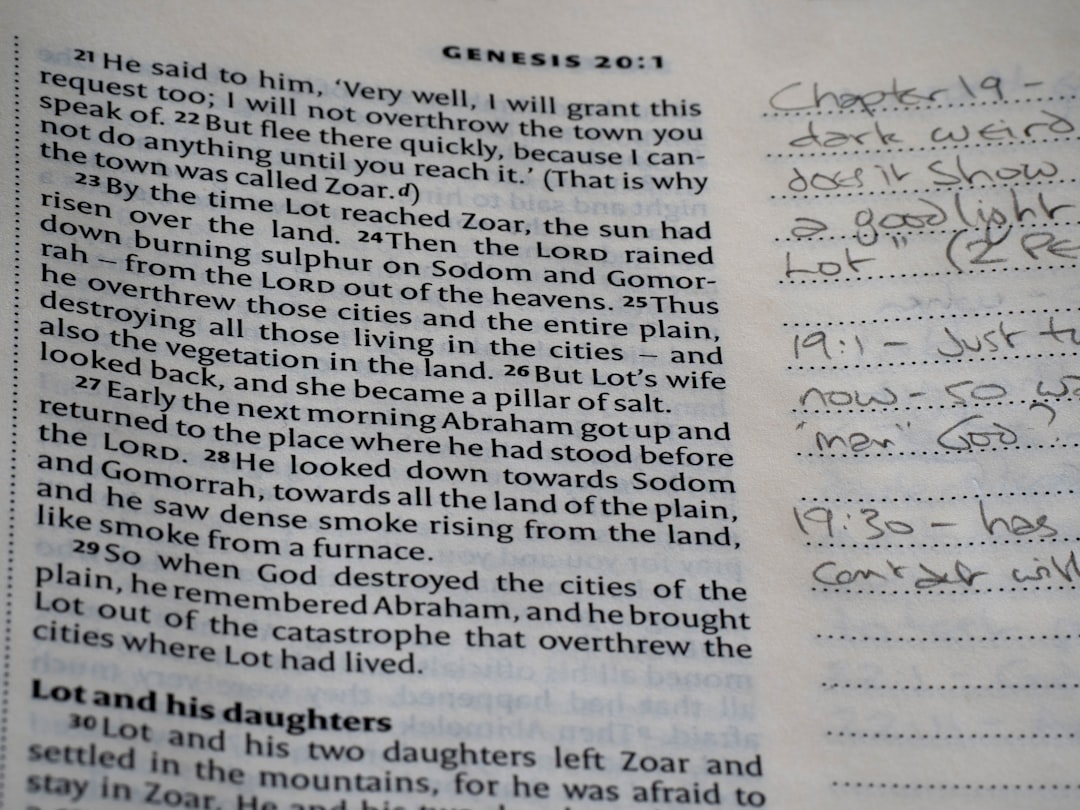 GENESIS 20:1
21 He said to him, ‘Very well, I will grant this
request too; I will not overthrow the town you
speak of. 22 But flee there quickly, because I can-
not do anything until you reach it.’ (That is why
the town was called Zoar.d)
23 By the time Lot reached Zoar, the sun had
risen over the land. 24 Then the LORD rained
down burning sulphur on Sodom and Gomor-
rah – from the LORD out of the heavens. 25 Thus
he overthrew those cities and the entire plain,
destroying all those living in the cities – and
also the vegetation in the land. 26 But Lot’s wife
looked back, and she became a pillar of salt.
27 Early the next morning Abraham got up and
returned to the place where he had stood before
the LORD. 28 He looked down towards Sodom
and Gomorrah, towards all the land of the plain,
and he saw dense smoke rising from the land,
like smoke from a furnace.
29 So when God destroyed the cities of the
plain, he remembered Abraham, and he brought
Lot out of the catastrophe that overthrew the
cities where Lot had lived.
Lot and his daughters
30 Lot and his two daughters left Zoar and
settled in the mountains, for he was afraid to
stay in Zoar. He and his two
Chapter 19 –
dark weird
does it show
a good light
Lot" (2 PE
19:1 – Just
now – so
"men" God?
19:30 – has